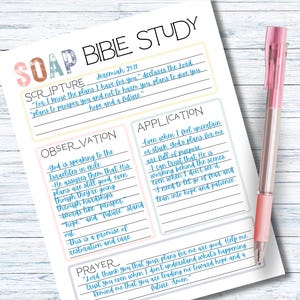 SOAP BIBLE STUDY
SCRIPTURE
Jeremiah 29:11
"For I know the plans I have for you," declares the Lord,
"plans to prosper you and not to harm you, plans to give you
hope and a future."
OBSERVATION
-God is speaking to the
Israelites in exile.
-He assures them that His
plans are still good even
though they're going
through hardships
-Words like "prosper"
"hope" and "future" stand
out.
-This is a promise of
restoration and care.
APPLICATION
-Even when I feel uncertain
or stuck, God's plans for me
are full of purpose.
-I can trust that He is
working behind the scenes
even when I don't see it.
-I need to let go of fear and
lean into hope and patience.
PRAYER
"Lord, thank you that your plans for me are good. Help me
trust You even when I don't understand what's happening
Remind me that You are leading me toward hope and a
future. Amen."